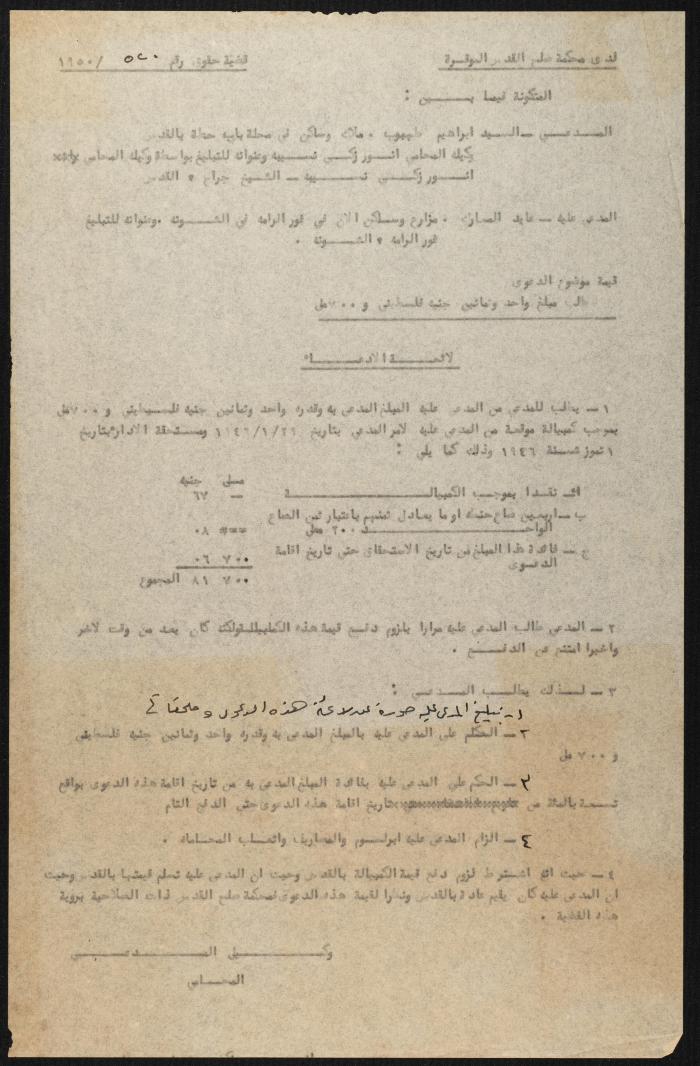 لدى محكمة صلح القدس الموقرة
قضية حقوق رقم ٥٢٠ /١٩٥٠
المتكونة فيما بـــين :
المـدعـــي ــ السيد ابراهيم طهبوب ، ملاك وساكن في محلة باب حطة بالقدس
وكيله المحامي انـور زكـي نسـيبه وعنوانه للتبليغ بواسطة وكيله المحامي
انـور زكــي نسـيبه ــ الشـيخ جراح ، القدس
المدعى عليه ــ عايد المبارك ، مزارع وساكن الان في غور الرامه في الشـونه ، وعنوانه للتبليغ
غور الرامه ، الشـونه .
قيمة موضوع الدعوى
طلب مبلغ واحد وثمانين جنيه فلسطيني و ٧٠٠ مل
لائحـــة الادعـــاء
١ ــ يطلب المدعي من المدعى عليه المبلغ المدعى به وقدره واحد وثمانين جنيه فلسـطيني و ٧٠٠ مل
بموجب كمبيالة موقعة من المدعى عليه لامر المدعي بتاريخ ١٩٤٦/١/٢٦ ومستحقة الاداء بتاريخ
١ تموز سـنة ١٩٤٦ وذلك كما يلي :
مــلى جنيه
أ ــ نقـدا بموجب الكمبيالــــة ــ ٦٧
ب ــ اربعـين صاع حنطه او ما يعادل ثمنهم باعتبار ثمن الصاع
الواحـــد ٢٠٠ مل ٠٨
ج ــ فائدة هذا المبلغ من تاريخ الاستحقاق حتى تاريخ اقامة
الدعـوى ٧٠٠ ٠٦
٧٠٠ ٨١ المجموع
٢ ــ المدعي طالب المدعى عليه مرارا بلزوم دفـع قيمة هذه الكمبيالة ولكنه كان يعد من وقت لاخر
واخيرا امتنع عن الدفــع .
٣ ــ لـــذلك يطلـــب المـــدعي :
١ ــ تبليغ المدعى عليه صورة عن لائحة هذه الدعوى وملحقاتها
٢ ــ الحكم على المدعى عليه بالمبلغ المدعى به وقدره واحد وثمانين جنيه فلسطيني
و ٧٠٠ مل
٣ ــ الحكم على المدعى عليه بفائدة المبلغ المدعى به من تاريخ اقامة هذه الدعوى بواقع
تسـعة بالمئة من تاريخ اقامة هذه الدعوى حتى الدفع التام
٤ ــ الزام المدعى عليه بالرسـوم والمصاريف واتعـاب المحـاماه .
٤ ــ حيث انه اشـترط لزوم دفع قيمة الكمبيالة بالقدس وحيث ان المدعى عليه تسلم قيمتها بالقدس وحيث
ان المدعى عليه كان يقيم عادة بالقدس ونظرا لقيمة هذه الدعوى لمحكمة صلح القدس ذات الصلاحية برؤية
هذه القضية .
وكـــيل المـــدعـــي
المحـــامي